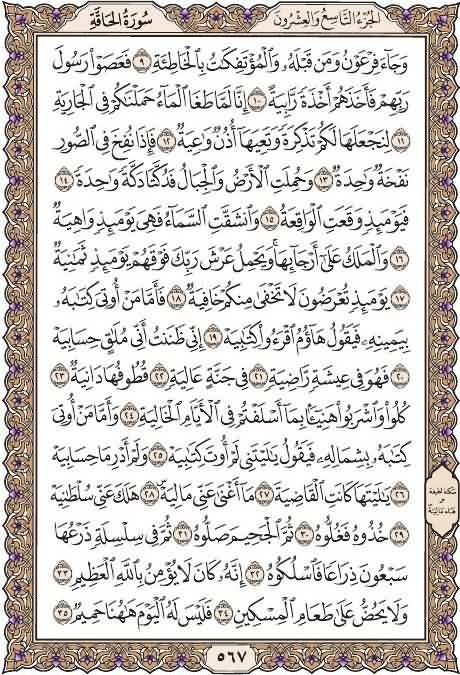 سُورَةُ الحَاقَّةِ
الجُزْءُ التَّاسِعُ وَالعِشْرُونَ
وَجَآءَ فِرْعَوْنُ وَمَن قَبْلَهُۥ وَٱلْمُؤْتَفِكَٰتُ بِٱلْخَاطِئَةِ ٩ فَعَصَوْا۟ رَسُولَ
رَبِّهِمْ فَأَخَذَهُمْ أَخْذَةً رَّابِيَةً ١٠ إِنَّا لَمَّا طَغَا ٱلْمَآءُ حَمَلْنَٰكُمْ فِى ٱلْجَارِيَةِ
١١ لِنَجْعَلَهَا لَكُمْ تَذْكِرَةً وَتَعِيَهَآ أُذُنٌ وَٰعِيَةٌ ١٢ فَإِذَا نُفِخَ فِى ٱلصُّورِ
نَفْخَةٌ وَٰحِدَةٌ ١٣ وَحُمِلَتِ ٱلْأَرْضُ وَٱلْجِبَالُ فَدُكَّتَا دَكَّةً وَٰحِدَةً ١٤
فَيَوْمَئِذٍ وَقَعَتِ ٱلْوَاقِعَةُ ١٥ وَٱنشَقَّتِ ٱلسَّمَآءُ فَهِىَ يَوْمَئِذٍ وَاهِيَةٌ
١٦ وَٱلْمَلَكُ عَلَىٰٓ أَرْجَآئِهَا ۚ وَيَحْمِلُ عَرْشَ رَبِّكَ فَوْقَهُمْ يَوْمَئِذٍ ثَمَٰنِيَةٌ
١٧ يَوْمَئِذٍ تُعْرَضُونَ لَا تَخْفَىٰ مِنكُمْ خَافِيَةٌ ١٨ فَأَمَّا مَنْ أُوتِىَ كِتَٰبَهُۥ
بِيَمِينِهِۦ فَيَقُولُ هَآؤُمُ ٱقْرَءُوا۟ كِتَٰبِيَهْ ١٩ إِنِّى ظَنَنتُ أَنِّى مُلَٰقٍ حِسَابِيَهْ
٢٠ فَهُوَ فِى عِيشَةٍ رَّاضِيَةٍ ٢١ فِى جَنَّةٍ عَالِيَةٍ ٢٢ قُطُوفُهَا دَانِيَةٌ ٢٣
كُلُوا۟ وَٱشْرَبُوا۟ هَنِيٓـًٔۢا بِمَآ أَسْلَفْتُمْ فِى ٱلْأَيَّامِ ٱلْخَالِيَةِ ٢٤ وَأَمَّا مَنْ أُوتِىَ
كِتَٰبَهُۥ بِشِمَالِهِۦ فَيَقُولُ يَٰلَيْتَنِى لَمْ أُوتَ كِتَٰبِيَهْ ٢٥ وَلَمْ أَدْرِ مَا حِسَابِيَهْ
٢٦ يَٰلَيْتَهَا كَانَتِ ٱلْقَاضِيَةَ ٢٧ مَآ أَغْنَىٰ عَنِّى مَالِيَهْ ۜ ٢٨ هَلَكَ عَنِّى سُلْطَٰنِيَهْ
٢٩ خُذُوهُ فَغُلُّوهُ ٣٠ ثُمَّ ٱلْجَحِيمَ صَلُّوهُ ٣١ ثُمَّ فِى سِلْسِلَةٍ ذَرْعُهَا
سَبْعُونَ ذِرَاعًا فَٱسْلُكُوهُ ٣٢ إِنَّهُۥ كَانَ لَا يُؤْمِنُ بِٱللَّهِ ٱلْعَظِيمِ ٣٣
وَلَا يَحُضُّ عَلَىٰ طَعَامِ ٱلْمِسْكِينِ ٣٤ فَلَيْسَ لَهُ ٱلْيَوْمَ هَٰهُنَا حَمِيمٌ ٣٥
٥٦٧